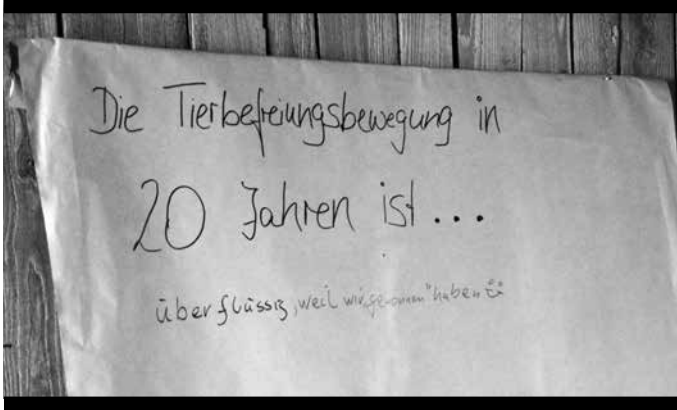 Die Tierbefreiungsbewegung in
20 Jahren ist...
überflüssig, weil wir "gewonnen" haben :)